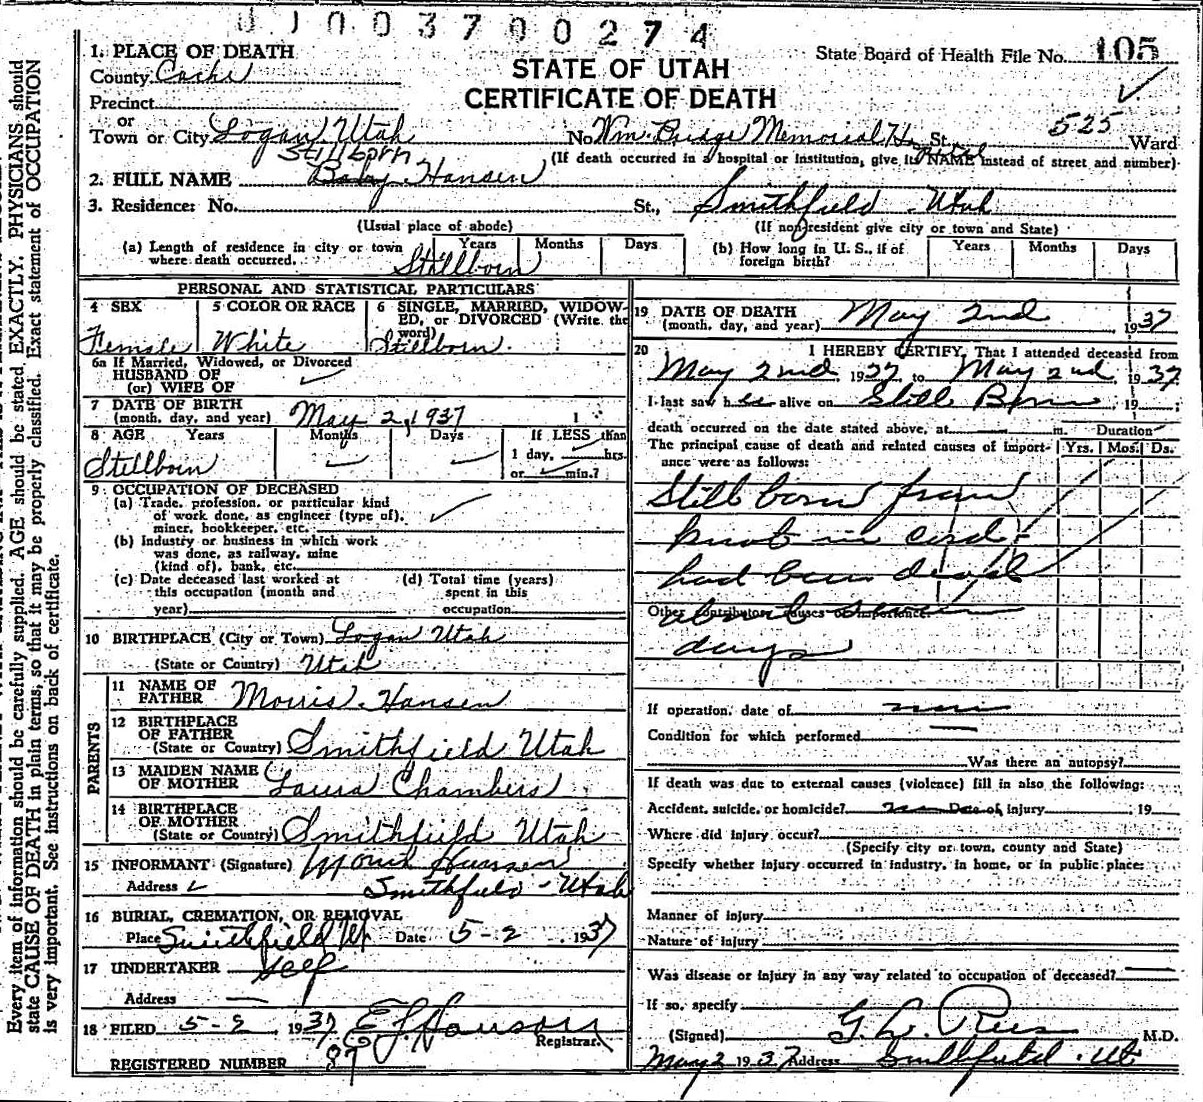 0100370 0274
1. PLACE OF DEATH
County Cache
Precinct
or
Town or City Logan Utah
STATE OF UTAH
CERTIFICATE OF DEATH
State Board of Health File No. 105
No. Wm. Budge Memorial Hospital St. 525 Ward
(If death occurred in a hospital or institution, give its NAME instead of street and number)
Stillborn
2. FULL NAME Baby Hansen
3. Residence: No. St., Smithfield - Utah
(Usual place of abode) (If nonresident give city or town and State)
(a) Length of residence in city or town where death occurred. Stillborn Years Months Days
(b) How long in U. S., if of foreign birth? Years Months Days
PERSONAL AND STATISTICAL PARTICULARS
4 SEX Female
5 COLOR OR RACE White
6 SINGLE, MARRIED, WIDOWED, or DIVORCED (Write the word) Stillborn.
6a If Married, Widowed, or Divorced
HUSBAND OF
(or) WIFE OF
7 DATE OF BIRTH
(month, day, and year) May 2, 1937 1
8 AGE Years Months Days If LESS than
Stillborn 1 day, hrs.
or min.?
9 OCCUPATION OF DECEASED
(a) Trade, profession, or particular kind
of work done, as engineer (type of),
miner, bookkeeper, etc.
(b) Industry or business in which work
was done, as railway, mine
(kind of), bank, etc.
(c) Date deceased last worked at
this occupation (month and
year)
(d) Total time (years)
spent in this
occupation
10 BIRTHPLACE (City or Town) Logan Utah
(State or Country) Utah
PARENTS
11 NAME OF
FATHER Morris Hansen
12 BIRTHPLACE
OF FATHER
(State or Country) Smithfield Utah
13 MAIDEN NAME
OF MOTHER Laura Chambers
14 BIRTHPLACE
OF MOTHER
(State or Country) Smithfield Utah
15 INFORMANT (Signature) Morris Hansen
Address Smithfield - Utah
16 BURIAL, CREMATION, OR REMOVAL
Place Smithfield Ut Date 5-2, 1937
17 UNDERTAKER Self
Address
18 FILED 5-2, 1937 Registrar.
REGISTERED NUMBER 87
19 DATE OF DEATH
(month, day, and year) May 2nd 1937
20 I HEREBY CERTIFY, That I attended deceased from
May 2nd, 1937 to May 2nd, 1937
I last saw her alive on Still Born, 19 ;
death occurred on the date stated above, at m. Duration
The principal cause of death and related causes of importance were as follows: Yrs. Mos. Ds.
Still born from
knot in cord -
had been dead
Other contributory causes of importance:
about
days
If operation, date of none
Condition for which performed
Was there an autopsy?
If death was due to external causes (violence) fill in also the following:
Accident, suicide, or homicide? Date of injury , 19
Where did injury occur?
(Specify city or town, county and State)
Specify whether injury occurred in industry, in home, or in public place:
Manner of injury
Nature of injury
Was disease or injury in any way related to occupation of deceased?
If so, specify
(Signed) G. L. Rees M.D.
May 2 1937 Address Smithfield - Ut
Every item of information should be carefully supplied. AGE should be stated EXACTLY. PHYSICIANS should
state CAUSE OF DEATH in plain terms, so that it may be properly classified. Exact statement of OCCUPATION
is very important. See instructions on back of certificate.